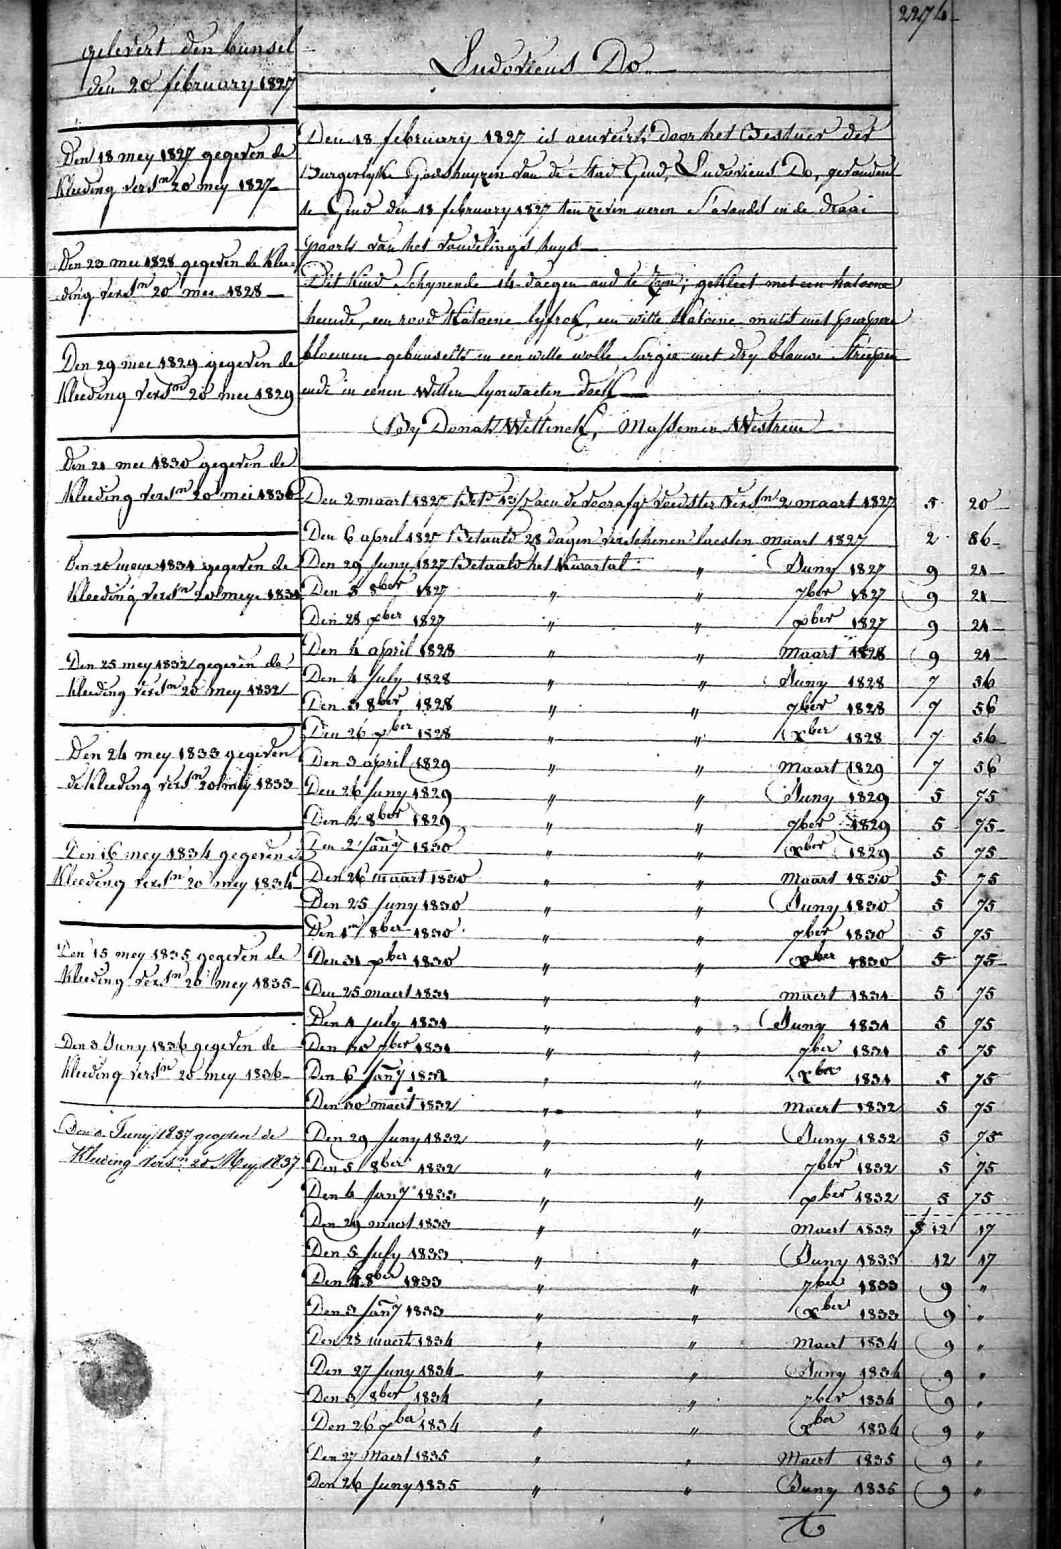 2274
gelevert den bunsel
den 20 february 1827
Den 18 mey 1827 gegeven de
kleeding versn 20 mey 1827
Den 23 mei 1828 gegeven de klee-
ding versn 20 mei 1828
Den 29 mei 1829 gegeven de
kleeding versn 20 mei 1829
Den 21 mei 1830 gegeven de
kleeding versn 20 mei 1830
Den 20 meye 1831 gegeven de
kleeding versn 20 meye 1831
Den 25 mey 1832 gegeven de
kleeding versn 20 mey 1832
Den 24 mey 1833 gegeven
de kleeding versn 20 mey 1833
Den 16 mey 1834 gegeven de
kleeding versn 20 mey 1834
Den 15 mey 1835 gegeven de
kleeding versn 20 mey 1835
Den 3 Juny 1836 gegeven de
kleeding versn 20 mey 1836
Den 2 Juny 1837 gegeven de
Kleeding versn 20 Mey 1837
Ludovicus Do.
Den 18 february 1827 is aenveirt door het Bestuer der
Burgerlyke Godshuyzen van de Stad Gend, Ludovicus Do, gevonden
te Gend den 18 february 1827 ten zeven ueren s'avonds in de draai
poorte van het vondelings huys
Dit kind schynende 14 daegen oud te zyn; gekleet met een katoene
hemde, een rood katoene lyfrok, een witte katoene muts met purpere
bloemen gebunselt in een witte wolle sargie met dry blauwe streepen
ende in eenen witten lynwaeten doek
By Donat Wettinck, Massemen Westrem
Den 2 maart 1827 Bet. 13/ aen de voorafge voedster versn 2 maart 1827 5 20
Den 6 april 1827 Betaald 28 dagen verschenen laesten maart 1827 2 86
Den 29 Juny 1827 Betaald het kwartal " Juny 1827 9 21
Den 5 8ber 1827 " " 7ber 1827 9 21
Den 28 xber 1827 " " xber 1827 9 21
Den 4 april 1828 " " Maart 1828 9 21
Den 4 July 1828 " " Juny 1828 7 56
Den 3 8ber 1828 " " 7ber 1828 7 56
Den 26 xber 1828 " " xber 1828 7 56
Den 3 april 1829 " " Maart 1829 7 56
Den 26 Juny 1829 " " Juny 1829 5 75
Den 2 8ber 1829 " " 7ber 1829 5 75
Den 2 Jany 1830 " " xber 1829 5 75
Den 26 maart 1830 " " Maart 1830 5 75
Den 25 Juny 1830 " " Juny 1830 5 75
Den 1n 8ber 1830 " " 7ber 1830 5 75
Den 31 xber 1830 " " xber 1830 5 75
Den 25 maert 1831 " " maert 1831 5 75
Den 1 july 1831 " " Juny 1831 5 75
Den 30 7ber 1831 " " 7ber 1831 5 75
Den 6 Jany 1832 " " xber 1831 5 75
Den 30 maert 1832 " " Maert 1832 5 75
Den 29 Juny 1832 " " Juny 1832 5 75
Den 5 8ber 1832 " " 7ber 1832 5 75
Den 4 Jany 1833 " " xber 1832 5 75
Den 29 maert 1833 " " Maert 1833 12 17
Den 5 July 1833 " " Juny 1833 12 17
Den 4 8ber 1833 " " 7ber 1833 9 "
Den 3 Jany 1833 " " xber 1833 9 "
Den 28 maert 1834 " " Maert 1834 9 "
Den 27 Juny 1834 " " Juny 1834 9 "
Den 3 8ber 1834 " " 7ber 1834 9 "
Den 26 xber 1834 " " xber 1834 9 "
Den 27 Maert 1835 " " Maert 1835 9 "
Den 26 Juny 1835 " " Juny 1835 9 "